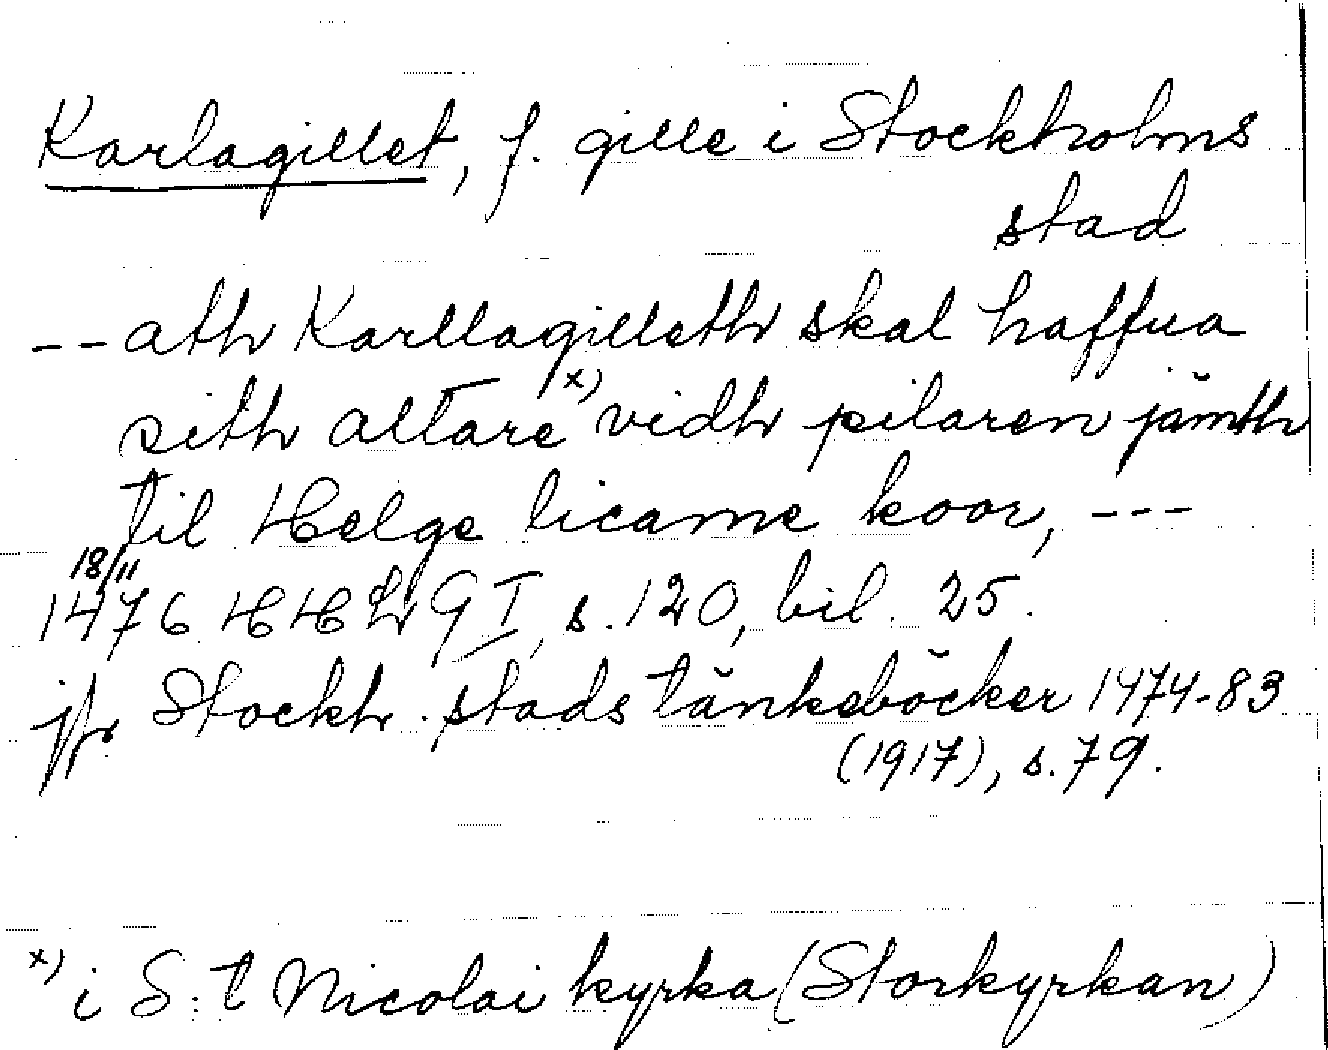 Karlagillet, f. gille i Stockholms
stad
-- ath Karllagilleth skal haffua
sith altare x) vidh pilaren jämth
til Helge licame koor, ---
18/11
1476 HH I, s. 120, bil. 25.
jfr Stockh. stads tänkeböcker 1474-83
(1917), s. 79.
x) i S:t Nicolai kyrka (Storkyrkan)